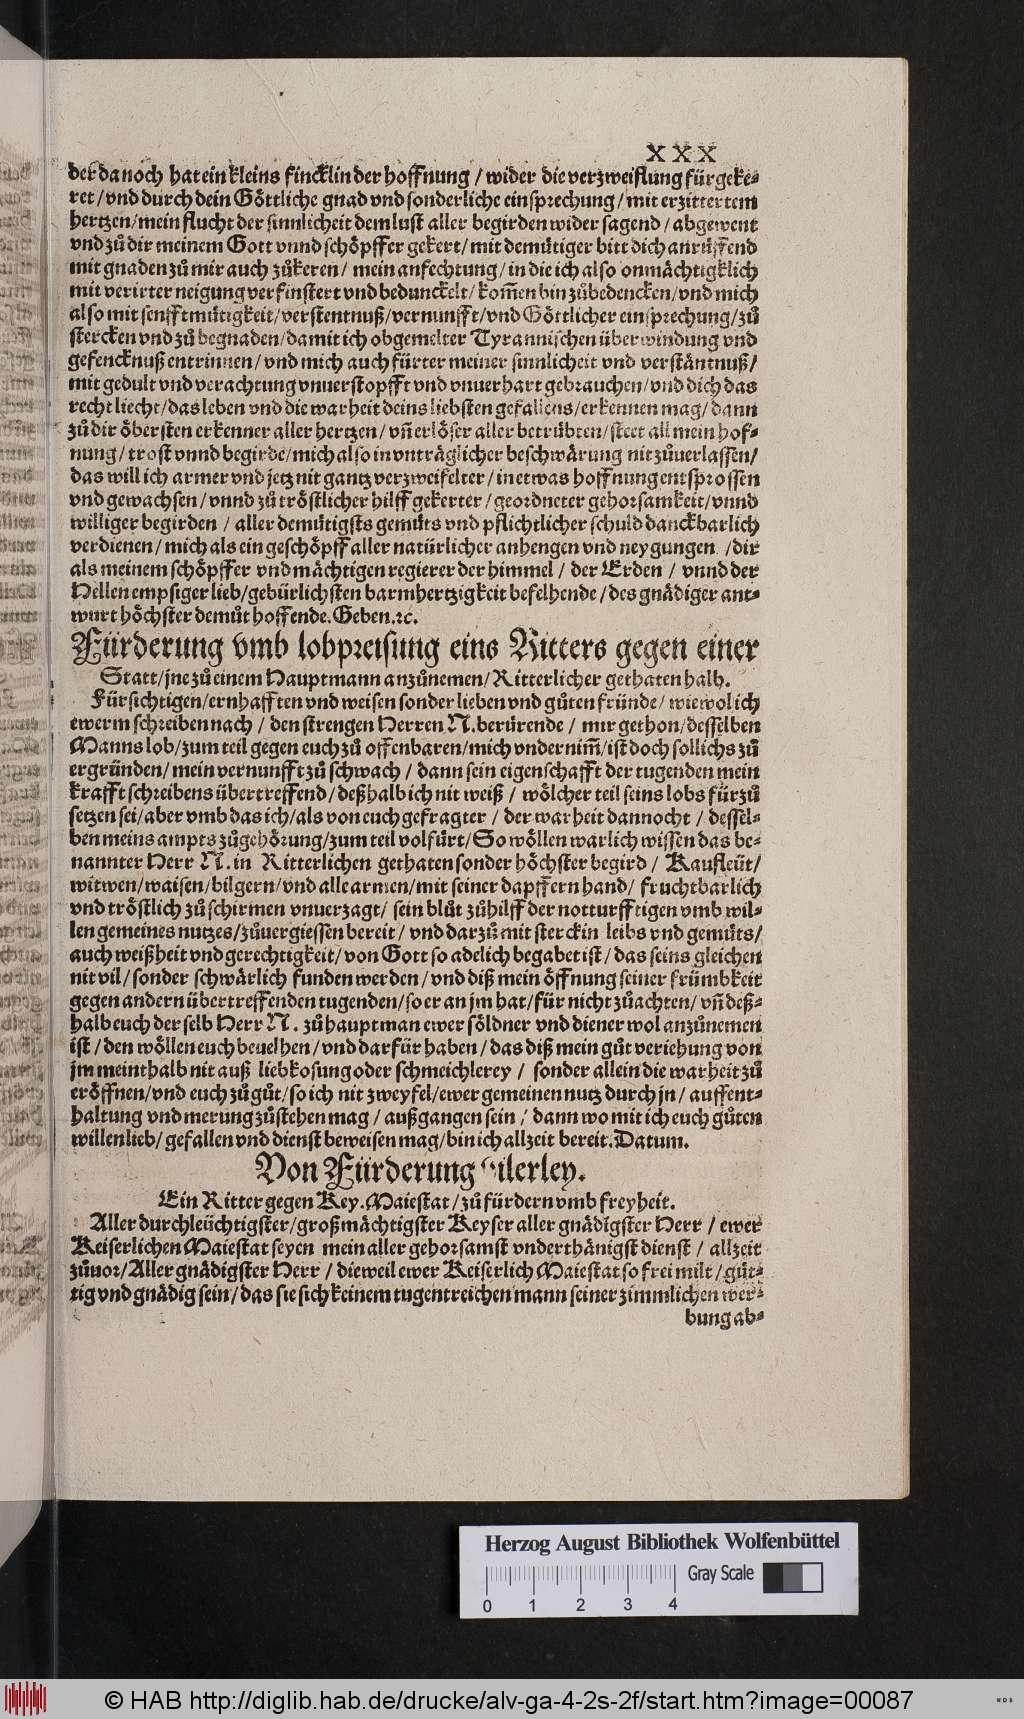 XXX
der da noch hat ein kleins fincklin der hoffnung / wider die verzweiflung für geke-
ret / vnd durch dein Göttliche gnad vnd sonderliche einsprechung / mit erzittertem
hertzen / mein flucht der sinnlicheit dem lust aller begirden wider sagend / abgewent
vnd zů dir meinem Gott vnnd schöpffer gekert / mit demütiger bitt dich anrüffend
mit gnaden zů mir auch zůkeren / mein anfechtung / in die ich also onmächtigklich
mit verirter neigung verfinstert vnd bedunckelt / kom̄en bin zůbedencken / vnd mich
also mit senfftmütigkeit / verstentnuß / vernunfft / vnd Göttlicher einsprechung / zů
stercken vnd zů begnaden / damit ich obgemelter Tyrannischen überwindung vnd
gefencknuß entrinnen / vnd mich auch fürter meiner sinnlicheit vnd verständtnuß /
mit gedult vnd verachtung vnuerstopfft vnd vnuerhart gebrauchen / vnd dich das
recht liecht / das leben vnd die warheit deins liebsten gefallens / erkennen mag / dann
zů dir öbersten erkenner aller hertzen / vn̄ erlöser aller betrübten / steet all mein hof-
nung / trost vnnd begirde / mich also in vnträglicher beschwärung nit zůuerlassen /
das will ich armer vnd jetz nit gantz verzweifelter / in etwas hoffnung entsprossen
vnd gewachsen / vnnd zů tröstlicher hilff gekerter / geordneter gehorsamkeit / vnnd
williger begirden / aller demütigsts gemüts vnd pflichtlicher schuld danckbarlich
verdienen / mich als ein geschöpff aller natürlicher anhengen vnd neygungen / dir
als meinem schöpffer vnd mächtigen regierer der himmel / der Erden / vnnd der
Hellen empsiger lieb / gebürlichsten barmhertzigkeit befelhende / des gnädiger ant-
wurt höchster demůt hoffende. Geben. ꝛc.
Fürderung vmb lobpreisung eins Ritters gegen einer
Statt / jne zů einem Hauptmann anzůnemen / Ritterlicher gethaten halb.
Fürsichtigen / ernhafften vnd weisen sonder lieben vnd gůten fründe / wiewol ich
ewerm schreiben nach / den strengen Herren N. berürende / mir gethon / desselben
Manns lob / zum teil gegen euch zů offenbaren / mich vndernim̄ / ist doch sollichs zů
ergründen / mein vernunfft zů schwach / dann sein eigenschafft der tugenden mein
krafft schreibens übertreffend / deßhalb ich nit weiß / wölcher teil seins lobs fürzů
setzen sei / aber vmb das ich / als von euch gefragter / der warheit dannocht / dessel-
ben meins ampts zůgehörung / zum teil volfürt / So wöllen warlich wissen das be-
nannter Herr N. in Ritterlichen gethaten sonder höchster begird / Kaufleüt /
witwen / waisen / bilgern / vnd alle armen / mit seiner dapffern hand / fruchtbarlich
vnd tröstlich zů schirmen vnuerzagt / sein blůt zůhilff der notturfftigen vmb wil-
len gemeines nutzes / zůuergiessen bereit / vnd darzů mit sterckin leibs vnd gemüts /
auch weißheit vnd gerechtigkeit / von Gott so adelich begabet ist / das seins gleichen
nit vil / sonder schwärlich funden werden / vnd diß mein öffnung seiner frümbkeit
gegen andern übertreffenden tugenden / so er an jm hat / für nicht zůachten / vn̄ deß-
halb euch der selb Herr N. zů hauptman ewer söldner vnd diener wol anzůnemen
ist / den wöllen euch beuelhen / vnd darfür haben / das diß mein gůt veriehung von
jm meinthalb nit auß liebkosung oder schmeichlerey / sonder allein die warheit zů
eröffnen / vnd euch zů gůt / so ich nit zweyfel / ewer gemeinen nutz durch jn / auffent-
haltung vnd merung zůstehen mag / außgangen sein / dann wo mit ich euch gůten
willen lieb / gefallen vnd dienst beweisen mag / bin ich allzeit bereit. Datum.
Von Fürderung ilerley.
Ein Ritter gegen Key. Maiestat / zů fürdern vmb freyheit.
Aller durchleüchtigster / großmächtigster Keyser aller gnädigster Herr / ewer
Keiserlichen Maiestat seyen mein aller gehorsamst vnderthänigst dienst / allzeit
zůuor / Aller gnädigster Herr / dieweil ewer Keiserlich Maiestat so frei milt / güt-
tig vnd gnädig sein / das sie sich keinem tugentreichen mann seiner zimmlichen wer-
bung ab-
Herzog August Bibliothek Wolfenbüttel
Gray Scale
0 1 2 3 4
© HAB http://diglib.hab.de/drucke/alv-ga-4-2s-2f/start.htm?image=00087